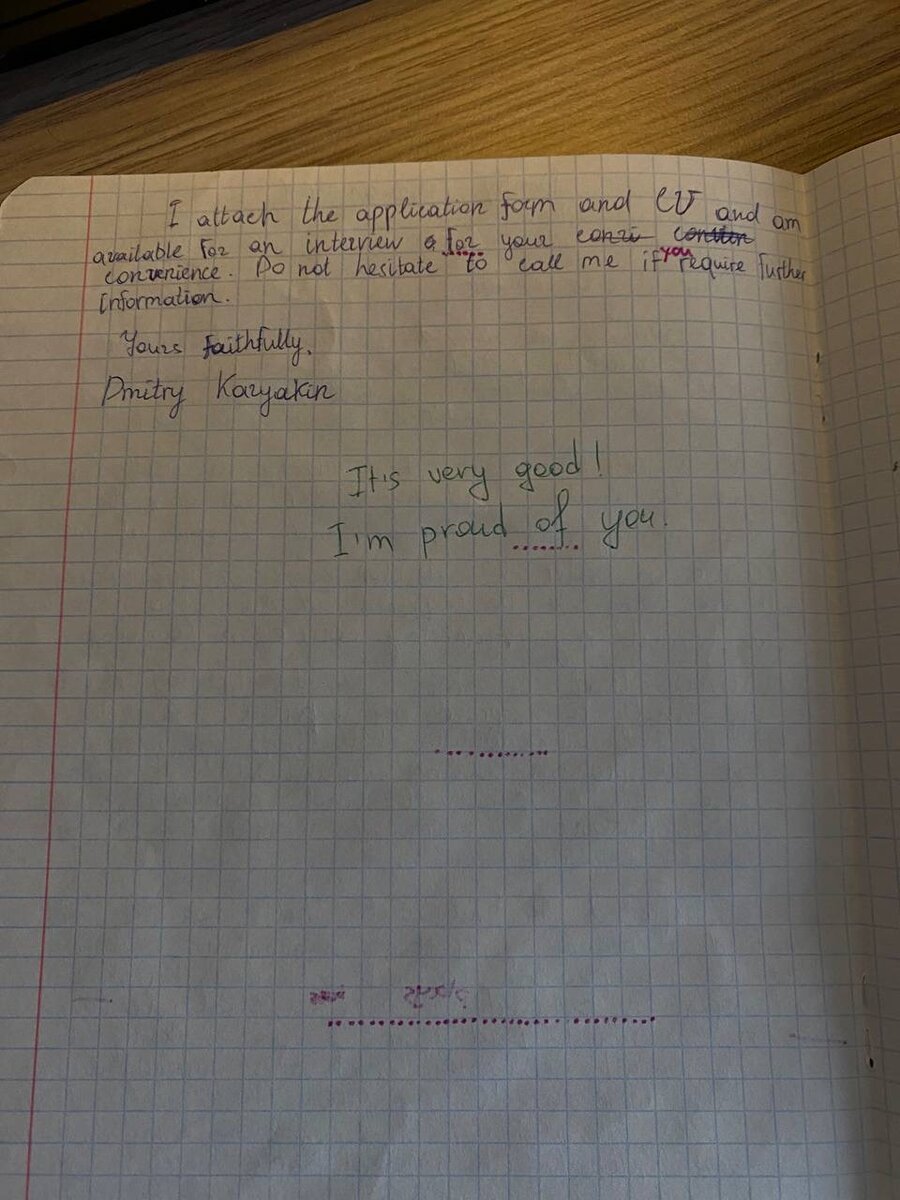 I attach the application form and CV and am
available for an interview for your
convenience. Do not hesitate to call me if you require further
information.
Yours faithfully.
Dmitry Karyakin
It's very good!
I'm proud of you.